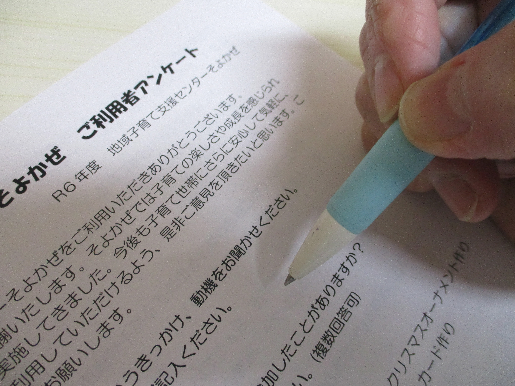 そよかぜ ご利用者アンケート
R6年度 地域子育て支援センターそよかぜ
そよかぜをご利用いただきありがとうございます。
謝いたします。そよかぜでは子育ての楽しさや成長を感じられ
実施してきました。今後も子育て世帯にさらに安心して気軽に、
利用していただけるよう、是非ご意見を頂きたいと思います。ご
お願いします。
うきっかけ、動機をお聞かせください。
記入ください。
加したことがありますか?
い。(複数回答可)
クリスマスオーナメント作り
カード作り